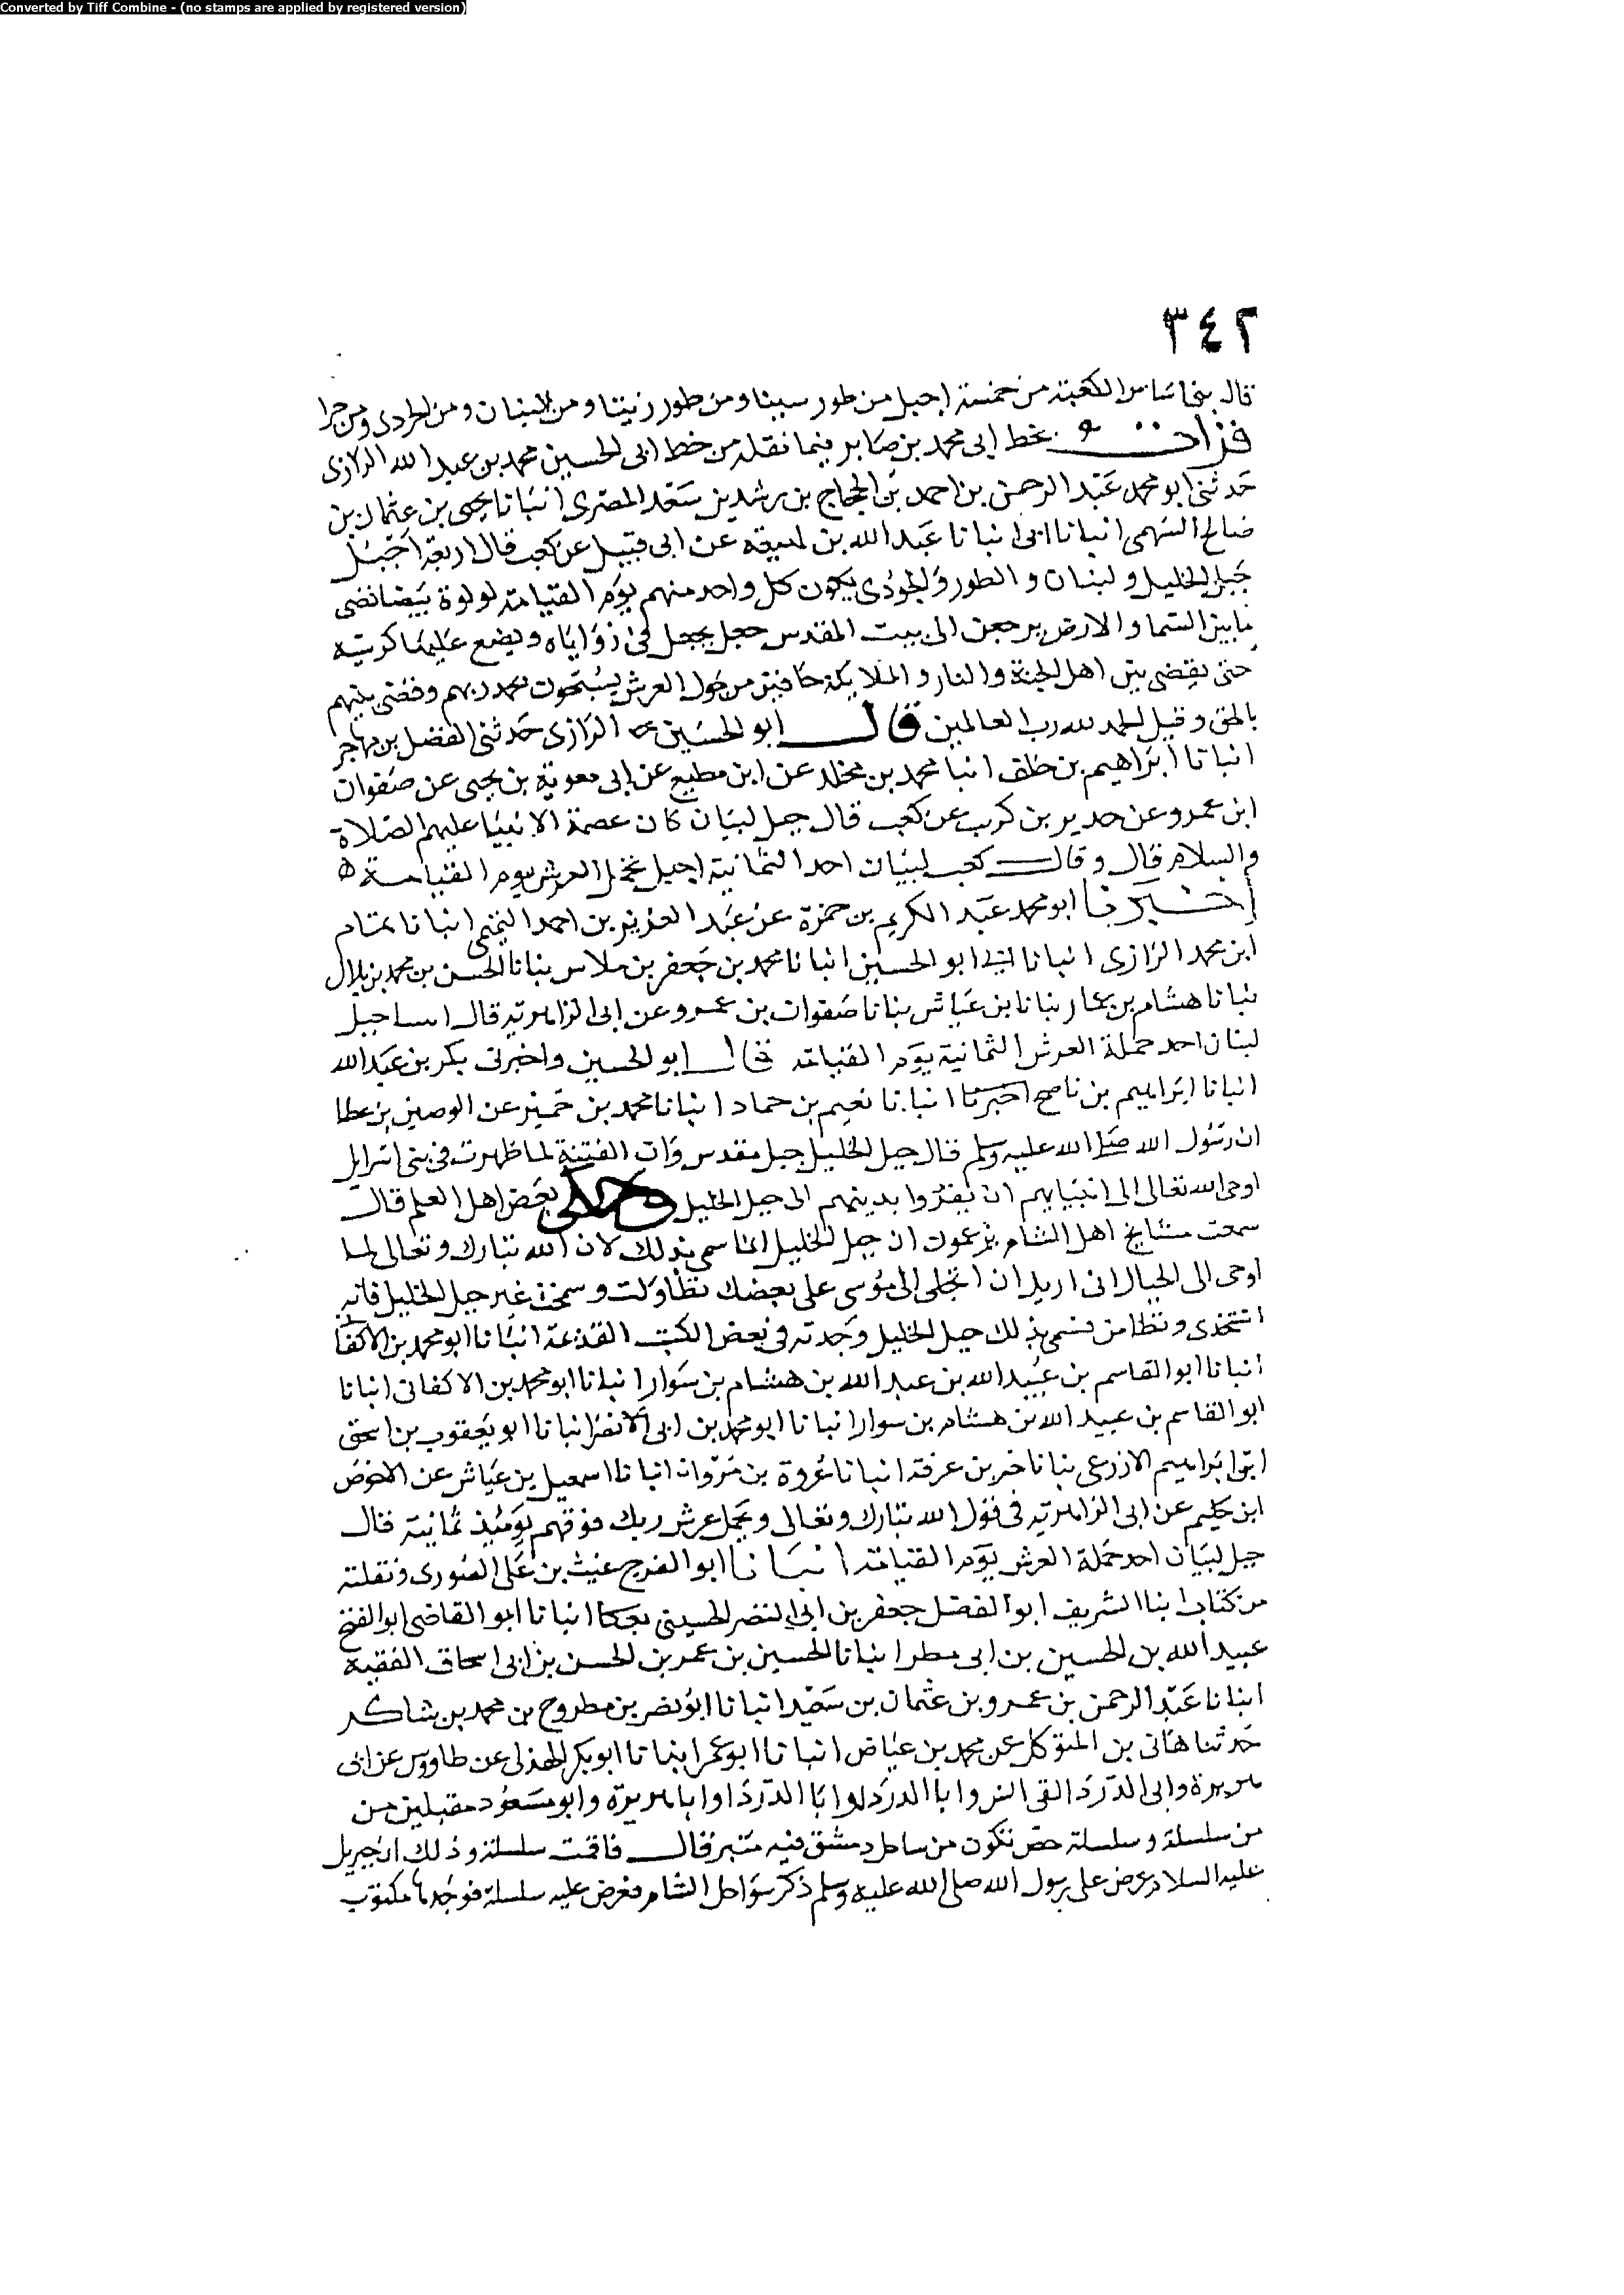 Converted by Tiff Combine - (no stamps are applied by registered version)
٣٤٢
قال بنى اساس الكعبة من خمسة اجبل من طور سينا ومن طور زيتا ومن لبنان ومن الجودى ومن حرا
قرات بخط ابى محمد بن صابر فيما نقله من خط ابى الحسين محمد بن عبد الله الرازى
حدثنى ابو محمد عبد الرحمن بن احمد بن الحجاج بن رشدين سعد المصرى انبانا يحيى بن عثمان بن
صالح السهمى انبانا ابى انبانا عبد الله بن لهيعة عن ابى قبيل عن كعب قال اربعة اجبل
جبل الخليل ولبنان والطور والجودى يكون كل واحد منهم يوم القيامة لولوة بيضا تضى
ما بين السما والارض يرجعن الى بيت المقدس حتى يجعل فى زواياه ويضع عليها كرسيه
حتى يقضى بين اهل الجنة والنار والملايكة حافين من حول العرش يسبحون بحمد ربهم وقضى بينهم
بالحق وقيل الحمد لله رب العالمين قال ابو الحسين الرازى حدثنى الفضل بن مهاجر
انبانا ابراهيم بن خلف انبا محمد بن مخلد عن ابن مطيع عن ابى معوية بن يحيى عن صفوان
ابن عمرو عن حدير بن كريب عن كعب قال جبل لبنان كان عصمة الانبيا عليهم الصلاة
والسلام قال وقال كعب لبنان احد الثمانية اجبل تحمل العرش يوم القيامة
اخبرنا ابو محمد عبد الكريم بن حمزة عن عبد العزيز بن احمد التميمى انبانا تمام
ابن محمد الرازى انبانا ابى ابو الحسين انبانا محمد بن جعفر بن ملاس نبانا الحسن بن محمد بن بلال
نبانا هشام بن عمار نبانا بن عياش نبانا صفوان بن عمرو عن ابى الزاهرية قال اما جبل
لبنان احد حملة العرش الثمانية يوم القيامة قال ابو الحسين واخبرنى بكر بن عبد الله
انبانا ابراهيم بن ناصح اخبرنا انبانا نعيم بن حماد انبانا محمد بن حمير عن الوضين بن عطا
ان رسول الله صلى الله عليه وسلم قال جبل الخليل جبل مقدس وان الفتنة لما ظهرت فى بنى اسرايل
اوحى الله تعالى الى انبيايهم ان يفروا بدينهم الى جبل الخليل وحكى بعض اهل العلم قال
سمعت مشايخ اهل الشام يزعمون ان جبل الخليل انما سمى بذلك لان الله تبارك وتعالى لما
اوحى الى الجبال انى اريد ان اتجلى الى موسى على بعضك تطاولت وشمخت غير جبل الخليل فانه
استخذى وتطامن فسمى بذلك جبل الخليل وجدته فى بعض الكتب القديمة انبانا ابو محمد بن الاكفا
انبانا ابو القاسم بن عبيد الله بن عبد الله بن هشام بن سوار انبانا ابو محمد بن الاكفانى انبانا
ابو القاسم بن عبيد الله بن هشام بن سوار انبانا ابو محمد بن ابى نصر انبانا ابو يعقوب بن اسحق
ابن ابراهيم الاذرعى نبانا خير بن عرفة انبانا عروة بن مروان انبانا اسمعيل بن عياش عن الاحوص
ابن حكيم عن ابى الزاهرية فى قول الله تبارك وتعالى ويحمل عرش ربك فوقهم يوميذ ثمانية قال
جبل لبنان احد حملة العرش يوم القيامة انبانا ابو الفرج غيث بن على الصورى ونقلته
من كتابه انبا الشريف ابو الفضل جعفر بن ابى النضر الحسينى بعكا انبانا ابو القاضى ابو الفتح
عبيد الله بن الحسين بن ابى مطر انبانا الحسين بن عمر بن الحسن بن ابى اسحاق الفقيه
انبانا عبد الرحمن بن عمرو بن عثمان بن سعيد انبانا ابو نصر بن مطروح بن محمد بن شاكر
حدثنا هانى بن المتوكل عن محمد بن عياض انبانا ابو عمر انبانا ابو بكر الهذلى عن طاووس عن ابى
هريرة وابى الدردا لقى ابا الدردا وابا هريرة وابو مسعود مقبلين من
من سلسلة وسلسلة حصن تكون من ساحل دمشق فيه منبر قال فاقت سلسلة وذلك ان جبريل
عليه السلام عرض على رسول الله صلى الله عليه وسلم ذكر سواحل الشام فعرض عليه سلسلة فوجدها مكتوب